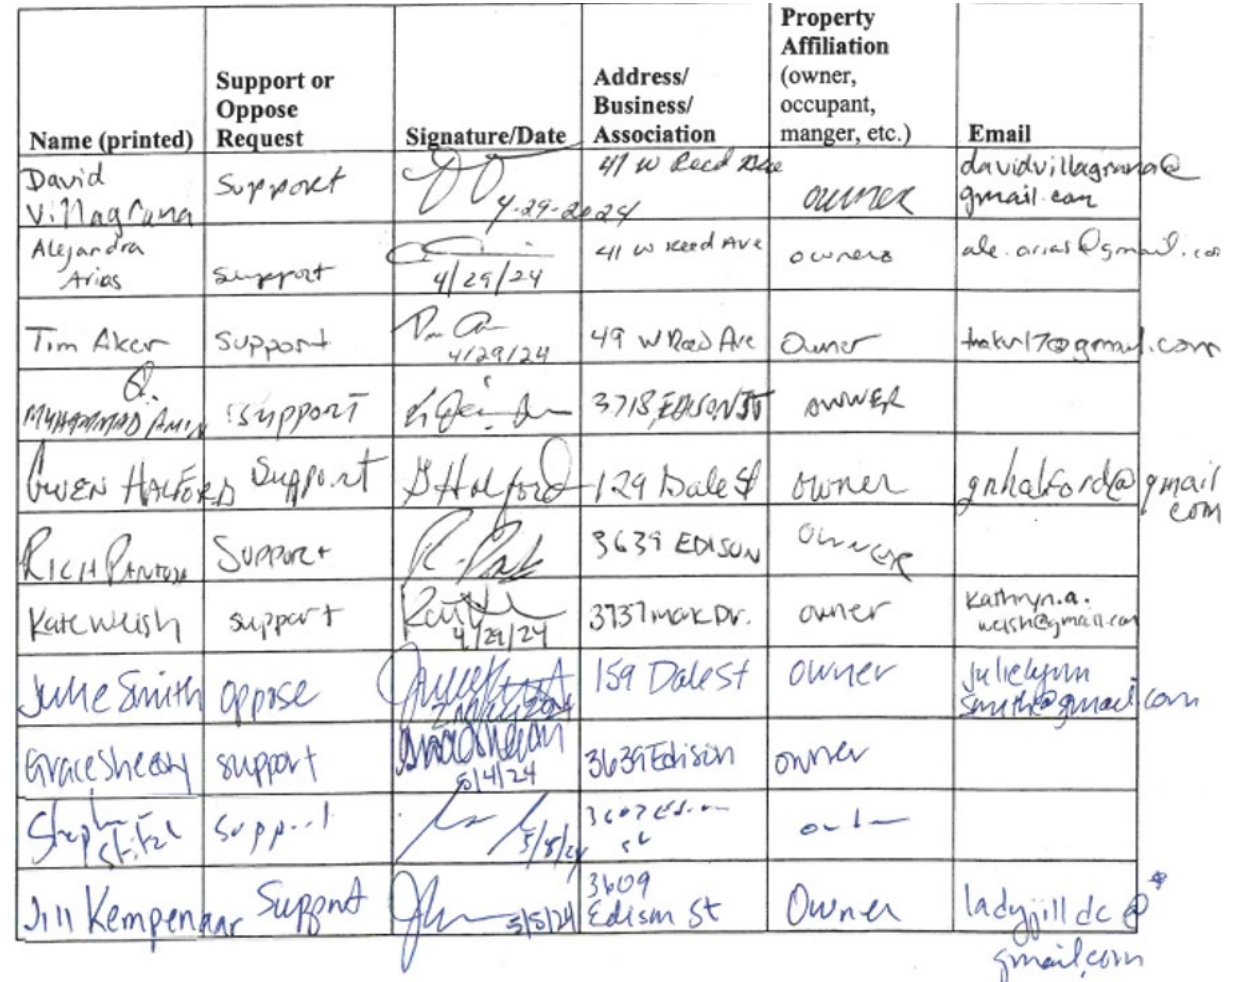 Name (printed) Support or Oppose Request Signature/Date Address/ Business/ Association Property Affiliation (owner, occupant, manger, etc.) Email
David Villagrana Support 4-29-2024 41 W Reed Ave owner davidvillagrana@gmail.com
Alejandra Arias support 4/29/24 41 W Reed Ave owners ale.arias@gmail.co
Tim Aker Support 4/29/24 49 W Reed Ave Owner @gmail.com
Q. MUHAMMAD AMIN support 3718 EDISON ST OWNER
GWEN HALFORD Support G Halford 129 Dale St owner gnhalford@gmail com
RICH PANTOJA Support 3639 EDISON OWNER
Kate Welsh support 4/29/24 3737 mark Dr. owner kathryn.a.welsh@gmail.com
Julie Smith oppose 159 Dale St owner julielynn smith@gmail.com
Grace Sheedy support 5/4/24 3639 Edison owner
Support 5/5/24 3607 Edison St
Jill Kempenaar Support 5/5/24 3609 Edison St Owner ladyjilldc@ * gmail.com